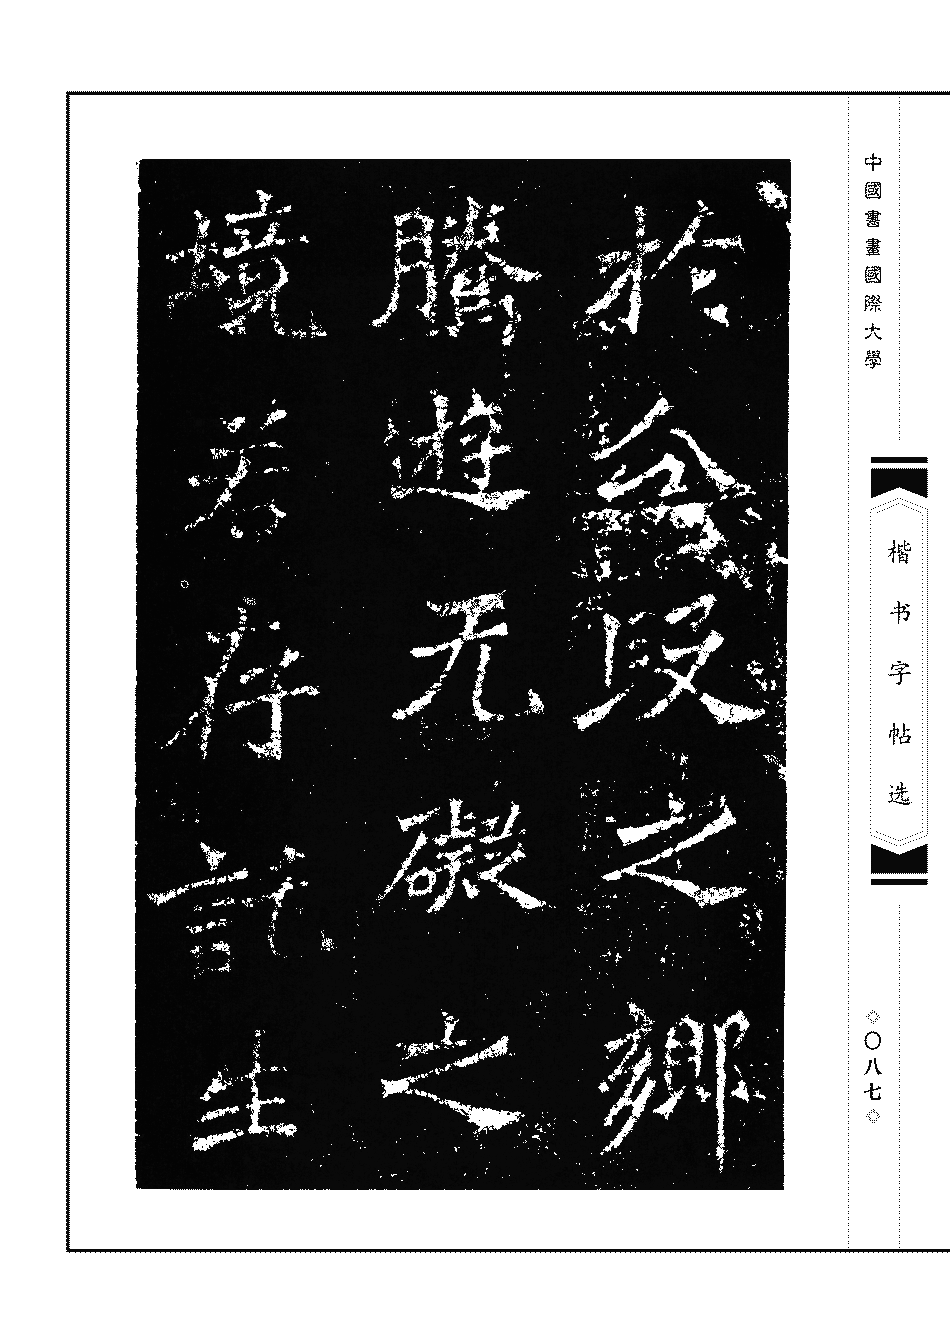 中國書畫國際大學
楷书字帖选
◇〇八七◇
於分段之鄉
騰遊无礙之
境若存託生